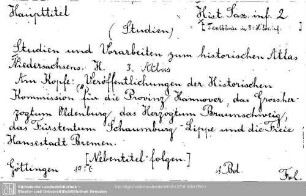 Haupttitel Hist. Sax. inf. 2
(Studien)
Studien und Vorarbeiten zum historischen Atlas
Niedersachsens. H. 3. Atlas
Am Kopfe: Veröffentlichungen der Historischen
Kommission für die Provinz Hannover, das Grossher-
zogtum Oldenburg, das Herzogtum Braunschweig,
das Fürstentum Schaumburg-Lippe und die Freie
Hansestadt Bremen.
[Nebentitel folgen.]
Göttingen Bd. Fol.